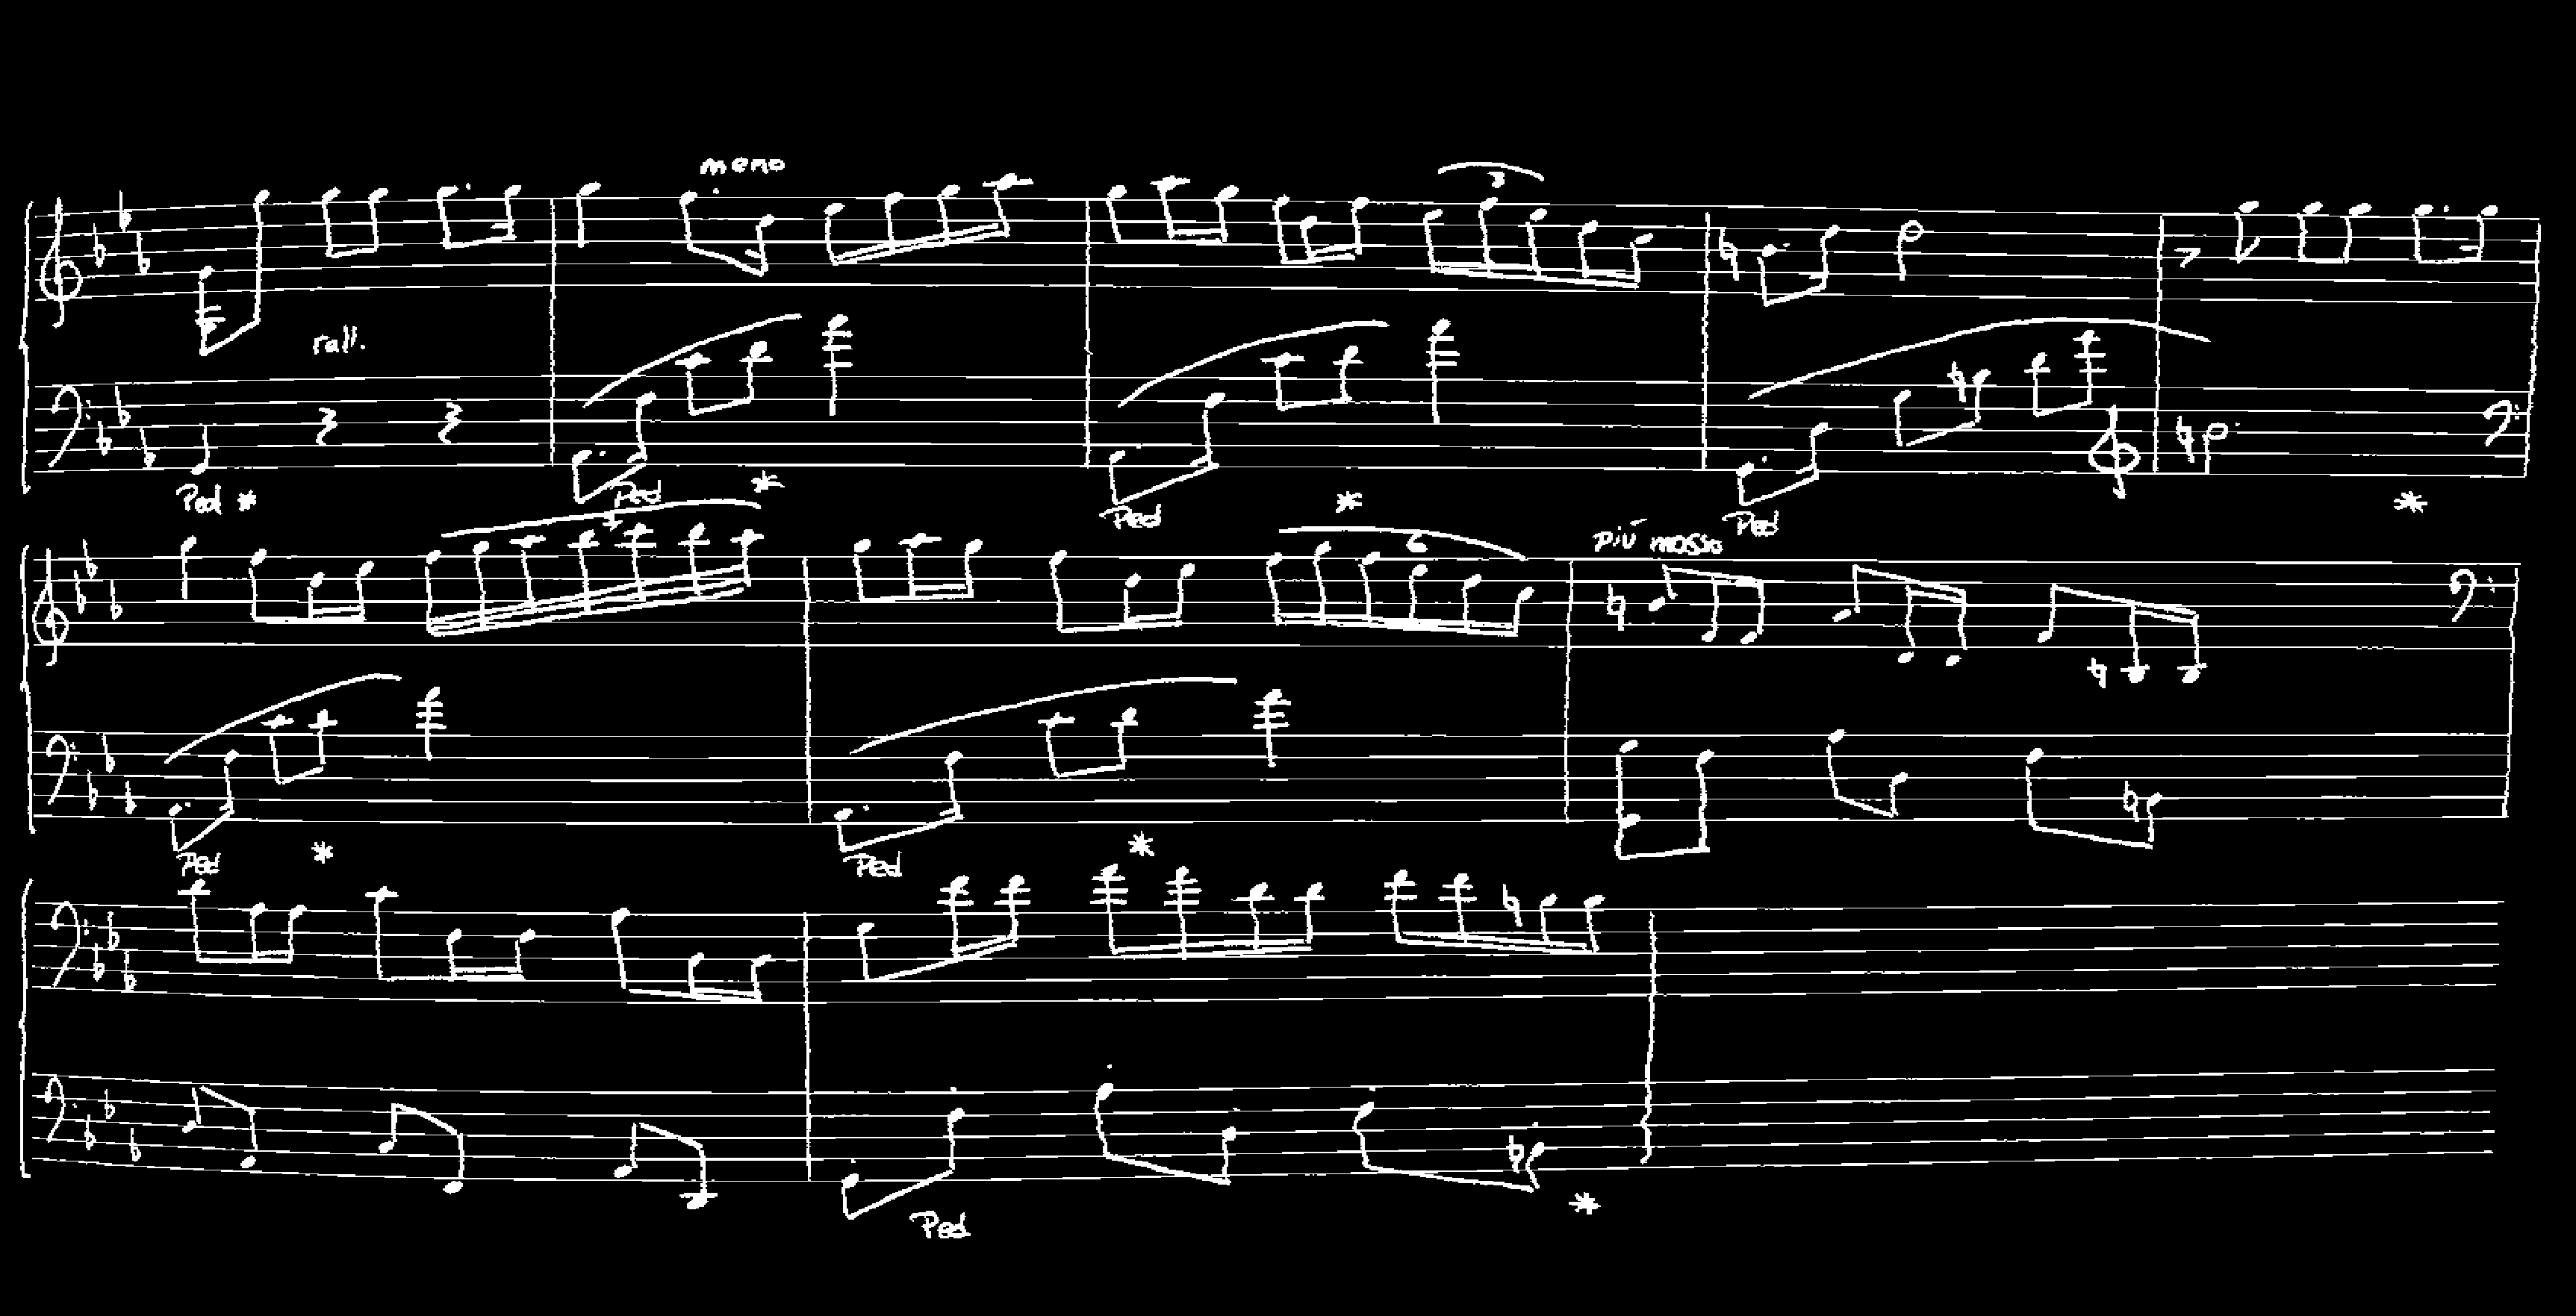 meno
3
rall.
Ped * Ped * Ped * Ped *
6
più mosso
Ped * Ped *
Ped *